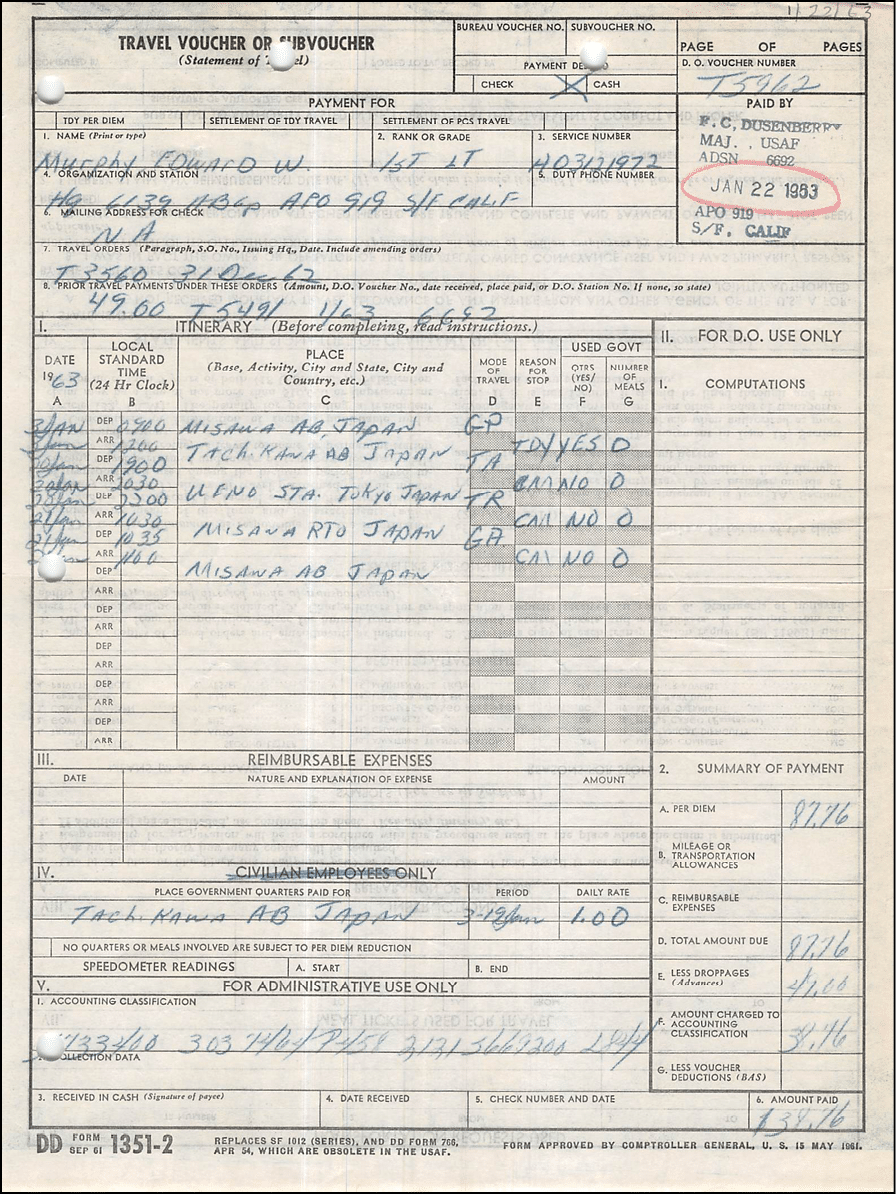 1/22/63
TRAVEL VOUCHER OR SUBVOUCHER
(Statement of Travel)
BUREAU VOUCHER NO. SUBVOUCHER NO.
PAGE OF PAGES
PAYMENT DESIRED
CHECK X CASH
D. O. VOUCHER NUMBER
T5962
PAYMENT FOR
TDY PER DIEM SETTLEMENT OF TDY TRAVEL SETTLEMENT OF PCS TRAVEL
PAID BY
F. C. DUSENBERRY
MAJ., USAF
ADSN 6692
JAN 22 1963
APO 919
S/F. CALIF
1. NAME (Print or type) 2. RANK OR GRADE 3. SERVICE NUMBER
MURPHY EDWARD W. 1ST LT AO3121972
4. ORGANIZATION AND STATION 5. DUTY PHONE NUMBER
HQ 6139 ABGp APO 919 S/F CALIF
6. MAILING ADDRESS FOR CHECK
NA
7. TRAVEL ORDERS (Paragraph, S.O. No., Issuing Hq., Date. Include amending orders)
T3560 31 Dec 62
8. PRIOR TRAVEL PAYMENTS UNDER THESE ORDERS (Amount, D.O. Voucher No., date received, place paid, or D.O. Station No. If none, so state)
49.00 T5491 1/63 6692
I. ITINERARY (Before completing, read instructions.)
II. FOR D.O. USE ONLY
DATE 1963 A
LOCAL STANDARD TIME (24 Hr Clock) B
PLACE (Base, Activity, City and State, City and Country, etc.) C
MODE OF TRAVEL D
REASON FOR STOP E
USED GOVT
QTRS (YES/NO) F
NUMBER OF MEALS G
1. COMPUTATIONS
3 JAN DEP 0900 MISAWA AB, JAPAN GP
3 Jan ARR 1200 TDY YES 0
20 Jan DEP 1900 TACHIKAWA AB JAPAN TA
20 JAN ARR 2030 NO 0
20 Jan DEP 2200 UENO STA. TOKYO JAPAN TR
21 Jan ARR 1030 NO 0
21 Jan DEP 1035 MISAWA RTO JAPAN GA
ARR 1100 NO 0
DEP MISAWA AB JAPAN
ARR
DEP
ARR
DEP
ARR
DEP
ARR
DEP
ARR
III. REIMBURSABLE EXPENSES
DATE NATURE AND EXPLANATION OF EXPENSE AMOUNT
2. SUMMARY OF PAYMENT
A. PER DIEM 87.76
B. MILEAGE OR TRANSPORTATION ALLOWANCES
C. REIMBURSABLE EXPENSES
D. TOTAL AMOUNT DUE 87.76
E. LESS DROPPAGES (Advances) 49.00
F. AMOUNT CHARGED TO ACCOUNTING CLASSIFICATION 38.76
G. LESS VOUCHER DEDUCTIONS (BAS)
IV. CIVILIAN EMPLOYEES ONLY
PLACE GOVERNMENT QUARTERS PAID FOR PERIOD DAILY RATE
TACHIKAWA AB JAPAN 3-19 Jan 1.00
NO QUARTERS OR MEALS INVOLVED ARE SUBJECT TO PER DIEM REDUCTION
SPEEDOMETER READINGS A. START B. END
V. FOR ADMINISTRATIVE USE ONLY
1. ACCOUNTING CLASSIFICATION
303 P458 S669200
2. COLLECTION DATA
3. RECEIVED IN CASH (Signature of payee) 4. DATE RECEIVED 5. CHECK NUMBER AND DATE 6. AMOUNT PAID
$38.76
DD FORM SEP 61 1351-2
REPLACES SF 1012 (SERIES), AND DD FORM 766,
APR 54, WHICH ARE OBSOLETE IN THE USAF.
FORM APPROVED BY COMPTROLLER GENERAL, U. S. 15 MAY 1961.